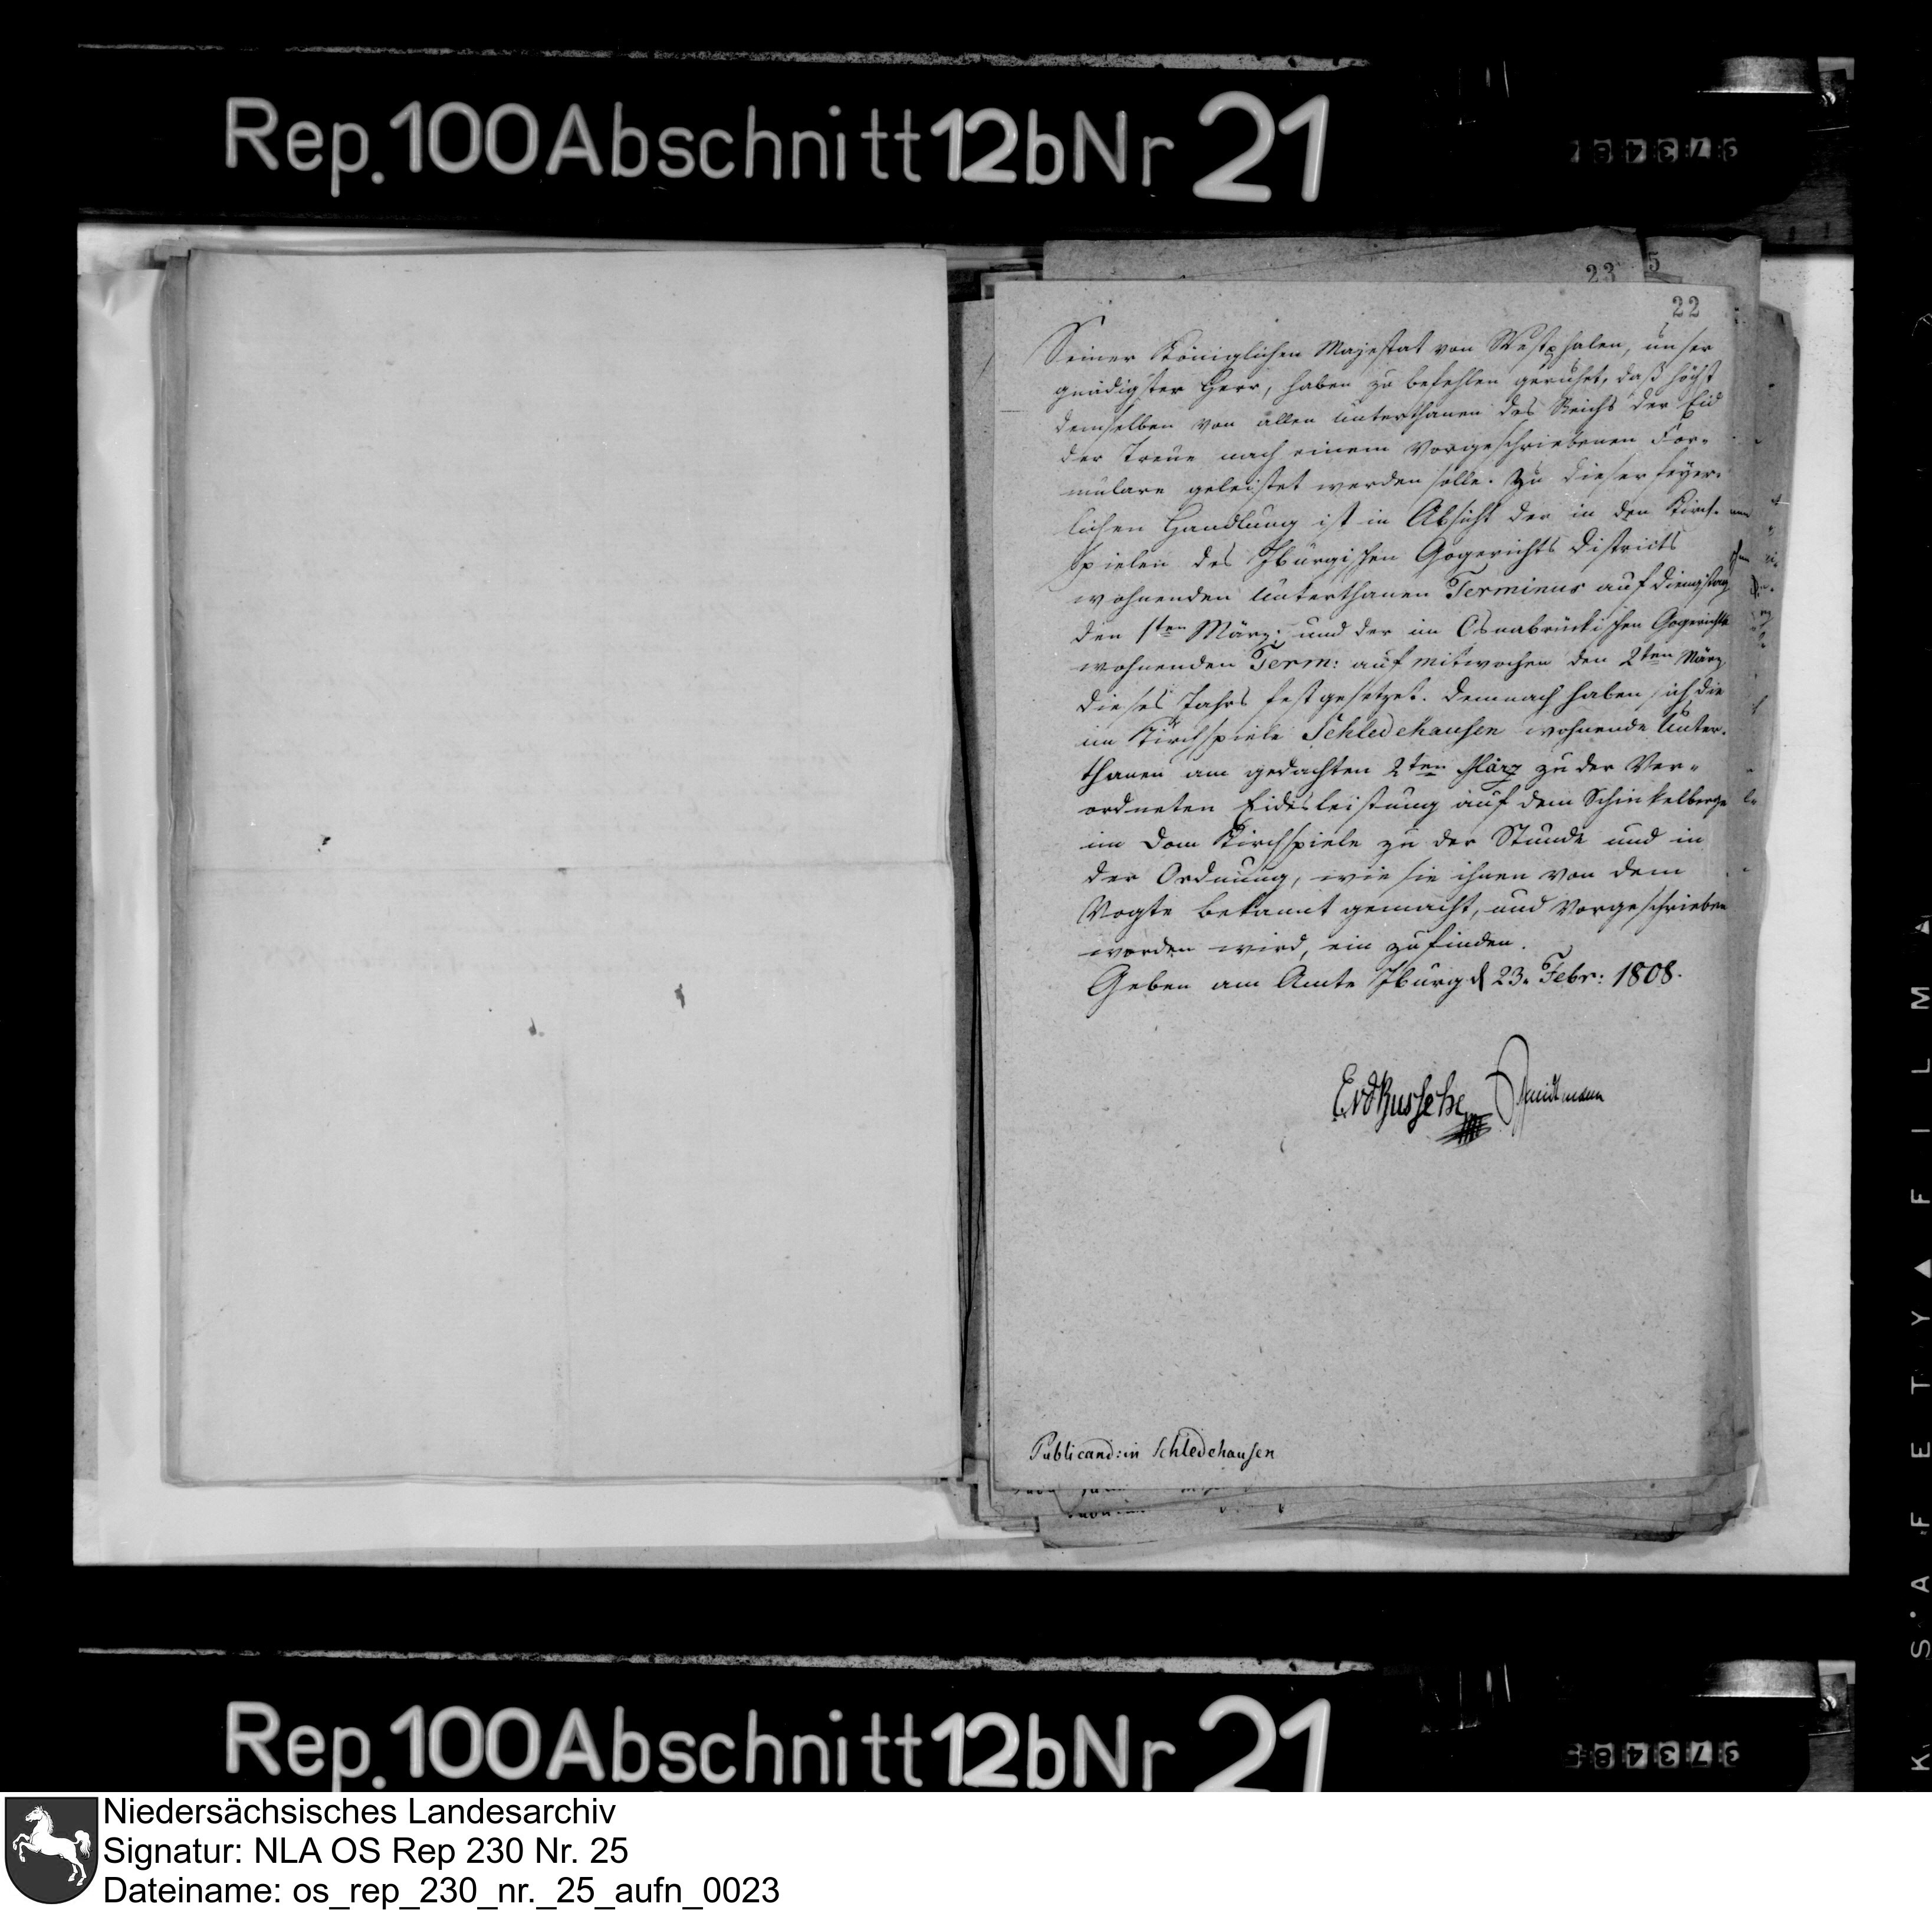 Rep. 100 Abschnitt 12b Nr 21
23 5
22
Seiner Königlichen Majestat von Westphalen, unser
gnädigster Herr, haben zu befehlen geruhet, daß höchst
demselben von allen Unterthanen des Reichs der Eid
der Treue nach einem Vorgeschriebenen For-
mulare geleistet werden solle. Zu dieser feyer-
lichen Handlung ist in Absicht der in den Kirch-
spielen des Iburgischen Gogerichts Districts
wohnenden Unterthanen Terminus auf Dienstag
den 1ten März; und der im Osnabrückischen Gogerichte
wohnenden Term: auf mitwochen den 2ten März
dieses Jahrs festgesetzet. Demnach haben sich die
im Kirchspiele Schledehausen wohnende Unter-
thanen am gedachten 2ten März zu der Ver-
ordneten Eidesleistung auf dem Schinkelberge
im Dom Kirchspiele zu der Stunde und in
der Ordnung, wie sie ihnen von dem
Vogte bekannt gemacht, und Vorgeschrieben
werden wird, ein zu finden.
Geben am Amte Iburg d 23. Febr: 1808.
EvdBussche
Publicand: in Schledehausen
Rep. 100 Abschnitt 12b Nr 21
K S.A F E T Y ▲ F I L M ▲
Niedersächsisches Landesarchiv
Signatur: NLA OS Rep 230 Nr. 25
Dateiname: os_rep_230_nr._25_aufn_0023